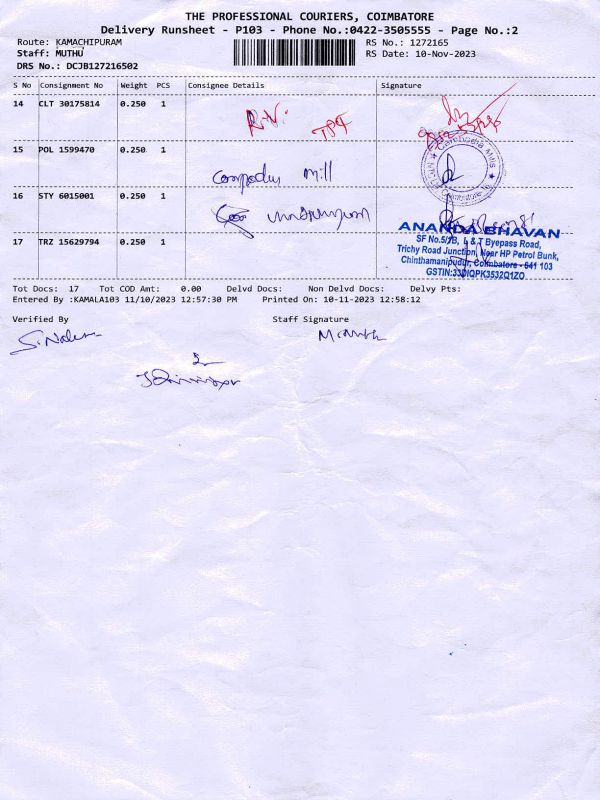 THE PROFESSIONAL COURIERS, COIMBATORE
Delivery Runsheet - P103 - Phone No.:0422-3505555 - Page No.:2
Route: KAMACHIPURAM RS No.: 1272165
Staff: MUTHU RS Date: 10-Nov-2023
DRS No.: DCJB127216502
S No Consignment No Weight PCS Consignee Details Signature
14 CLT 30175814 0.250 1
15 POL 1599470 0.250 1
mill
16 STY 6015001 0.250 1
ANANDA BHAVAN
SF No.5/1B, L & T Byepass Road,
17 TRZ 15629794 0.250 1
Trichy Road Junction, Near HP Petrol Bunk,
Chinthamanipudur, Coimbatore - 641 103
GSTIN:33DIQPK3532Q1ZO
Tot Docs: 17 Tot COD Amt: 0.00 Delvd Docs: Non Delvd Docs: Delvy Pts:
Entered By :KAMALA103 11/10/2023 12:57:30 PM Printed On: 10-11-2023 12:58:12
Verified By Staff Signature